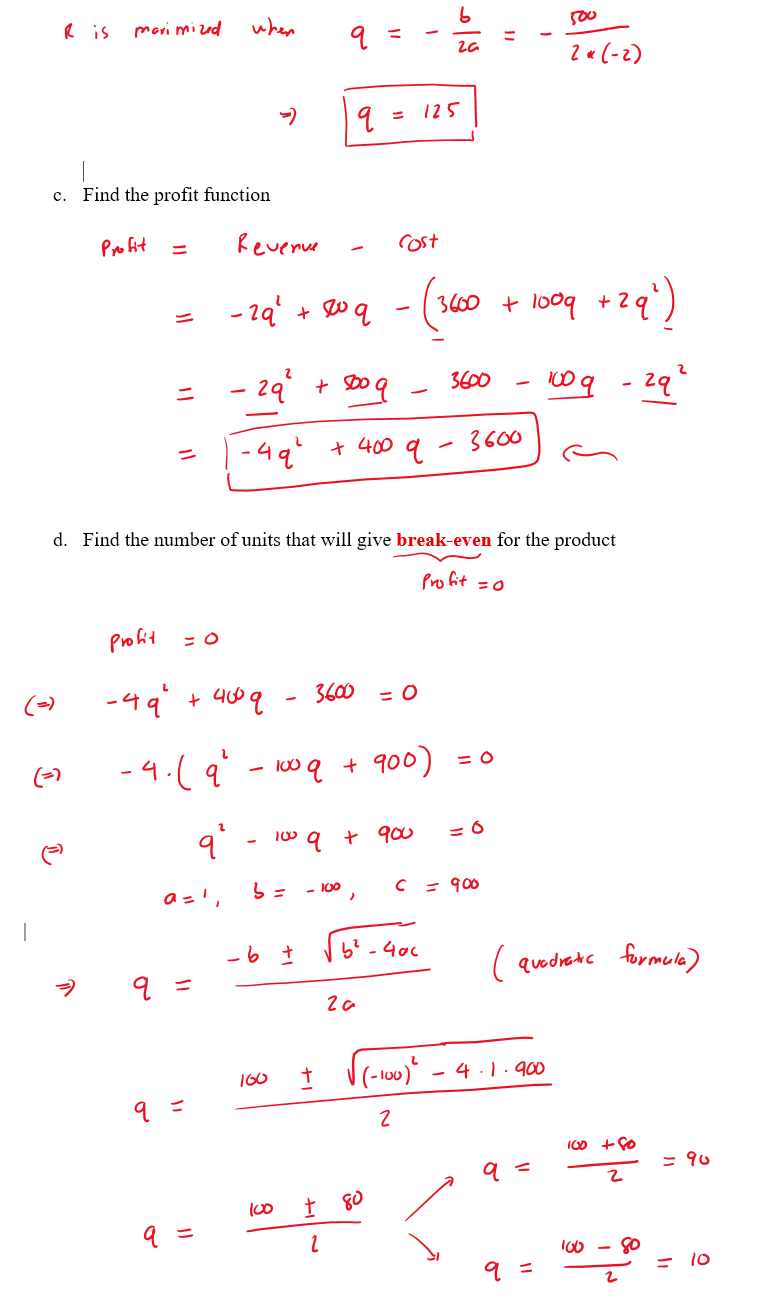 R is maximized when q = - b/2a = - 500/2*(-2)
⇒ q = 125
c. Find the profit function
Profit = Revenue - Cost
= -2q² + 500q - (3600 + 100q + 2q²)
= -2q² + 500q - 3600 - 100q - 2q²
= -4q² + 400q - 3600
d. Find the number of units that will give break-even for the product
Profit = 0
Profit = 0
(=) -4q² + 400q - 3600 = 0
(=) -4.(q² - 100q + 900) = 0
(=) q² - 100q + 900 = 0
a = 1, b = -100, c = 900
⇒ q = -b ± √b² - 4ac / 2a (quadratic formula)
q = 100 ± √(-100)² - 4 · 1 · 900 / 2
q = 100 + 80 / 2 = 90
q = 100 ± 80 / 2
q = 100 - 80 / 2 = 10